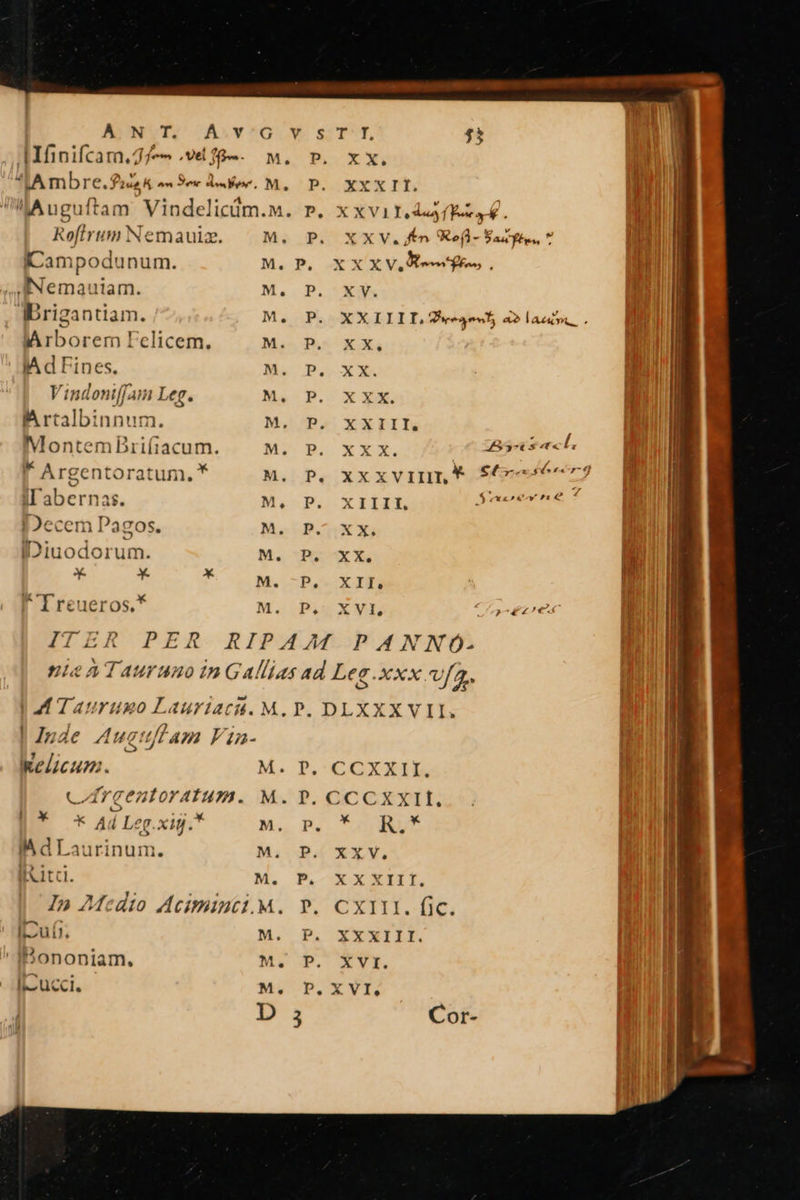 ANT. AVGVSTI. 53
Ifinifcam. vel M. P. XX.
Ambre. M. P. XXXII.
Auguſtam Vindelicûm. M. P. XXVII.
Roſtrum Nemauiæ. M. P. XXV.
Campodunum. M. P. XXXV.
Nemauiam. M. P. XV.
Brigantiam. M. P. XXIIII.
Arborem Felicem. M. P. XX.
Ad Fines. M. P. XX.
Vindoniſſam Leg. M. P. XXX.
Artalbinnum. M. P. XXIII.
Montem Briſiacum. M. P. XXX.
* Argentoratum. * M. P. XXXVIIII. *
Tabernas. M. P. XIIII.
Decem Pagos. M. P. XX.
Diuodorum. M. P. XX.
* * * M. P. XII.
* Treueros. * M. P. XVI.
ITER PER RIPAM PANNO-
niæ à Tauruno in Gallias ad Leg. xxx. vſq.
A Tauruno Lauriacū. M. P. DLXXXVII.
Inde Auguſtam Vin-
delicum. M. P. CCXXII.
Argentoratum. M. P. CCCXXII.
* * Ad Leg. xiij. * M. P. * R. *
Ad Laurinum. M. P. XXV.
Rittū. M. P. XXXIII.
In Medio Aciminci. M. P. CXIII. ſic.
Cuſi. M. P. XXXIII.
Bononiam. M. P. XVI.
Cucci. M. P. XVI.
D 3 Cor-